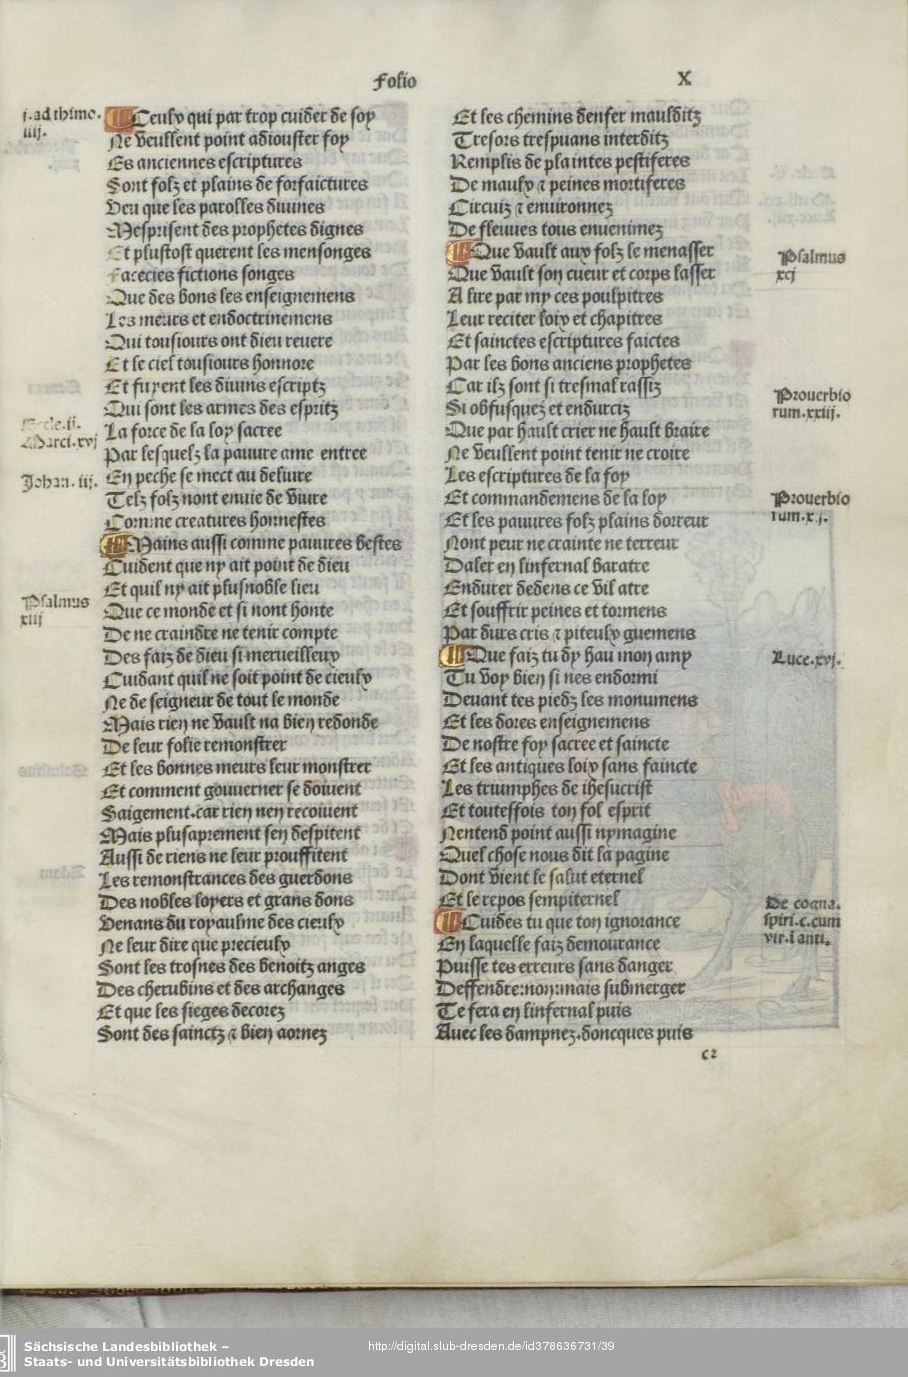 Folio X
j.ad thimo.
iiij.
Ceulx qui par trop cuider de soy
Ne veullent point adiouster foy
Es anciennes escriptures
Sont folz et plains de forfaictures
Veu que les parolles diuines
Mesprisent des prophetes dignes
Et plustost querent les mensonges
Facecies fictions songes
Que des bons les enseignemens
Les meurs et endoctrinemens
Qui tousiours ont dieu reuere
Et le ciel tousiours honnore
Et fuyent les diuins escriptz
Qui sont les armes des espritz
La force de la loy sacree
Marci.xvj
Par lesquelz la pauure ame entree
En peche se mect au deliure
Johan.iij.
Telz folz nont enuie de viure
Comme creatures honnestes
Mains aussi comme pauures bestes
Cuident que ny ait point de dieu
Et quil ny ait plusnoble lieu
Psalmus
xiij
Que ce monde et si nont honte
De ne craindre ne tenir compte
Des faiz de dieu si merueilleux
Cuidant quil ne soit point de cieulx
Ne de seigneur de tout le monde
Mais rien ne vault na bien redonde
De leur folie remonstrer
Et les bonnes meurs leur monstrer
Et comment gouuerner se doiuent
Saigement.car rien nen recoiuent
Mais plusaprement sen despitent
Aussi de riens ne leur prouffitent
Les remonstrances des guerdons
Des nobles loyers et grans dons
Venans du royaulme des cieulx
Ne leur dire que precieulx
Sont les trosnes des benoitz anges
Des cherubins et des archanges
Et que les sieges decorez
Sont des sainctz ⁊ bien aornez
Et les chemins denfer maulditz
Tresors trespuans interditz
Remplis de plaintes pestiferes
De maulx ⁊ peines mortiferes
Circuiz ⁊ enuironnez
De fleuues tous enuenimez
Que vault aux folz le menasser
Psalmus
xcj
Que vault son cueur et corps lasser
A lire par my ces poulpitres
Leur reciter loix et chapitres
Et sainctes escriptures faictes
Par les bons anciens prophetes
Car ilz sont si tresmal rassiz
Prouerbio
rum.xxiij.
Si obfusquez et endurciz
Que par hault crier ne hault braire
Ne veullent point tenir ne croire
Les escriptures de la foy
Et commandemens de la loy
Prouerbio
rum.x.j.
Et les pauures folz plains dorreur
Nont peur ne crainte ne terreur
Daler en linfernal baratre
Endurer dedens ce vil atre
Et souffrir peines et tormens
Par durs cris ⁊ piteulx guemens
Que faiz tu dy hau mon amy
Luce.xvj.
Tu voy bien si nes endormi
Deuant tes piedz les monumens
Et les dores enseignemens
De nostre foy sacree et saincte
Et les antiques loix sans faincte
Les triumphes de ihesucrist
Et touteffois ton fol esprit
Nentend point aussi nymagine
Quel chose nous dit la pagine
Dont vient le salut eternel
Et le repos sempiternel
De cogna.
spiri.c.cum
vir.i anti.
Cuides tu que ton ignorance
En laquelle faiz demourance
Puisse tes erreurs sans danger
Deffendre:non:mais submerger
Te fera en linfernal puis
Auec les dampnez.doncques puis
c2
Sächsische Landesbibliothek –
Staats- und Universitätsbibliothek Dresden
http://digital.slub-dresden.de/id378636731/39